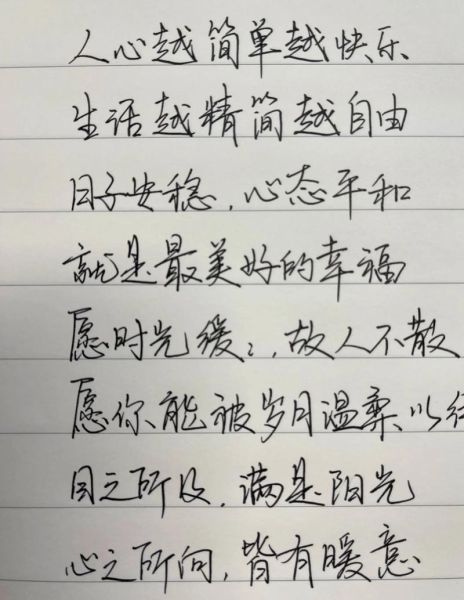 人心越简单越快乐
生活越精简越自由
日子安稳，心态平和
就是最美好的幸福
愿时光缓缓，故人不散
愿你能被岁月温柔以
目之所及，满是阳光
心之所向，皆有暖意